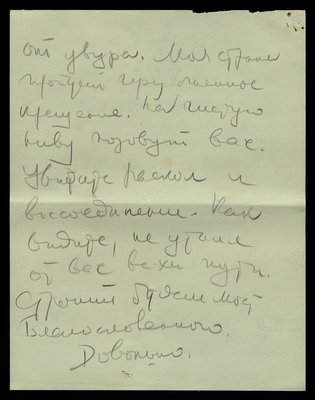 от увура. Моя страна
пройдет через огненное
крещение. На чистую
ниву позовут вас.
Увидите раскол и
воссоединение. Как
видите, не утаил
от вас вехи пути.
Строит будем мост
Благословенного.
Довольно.